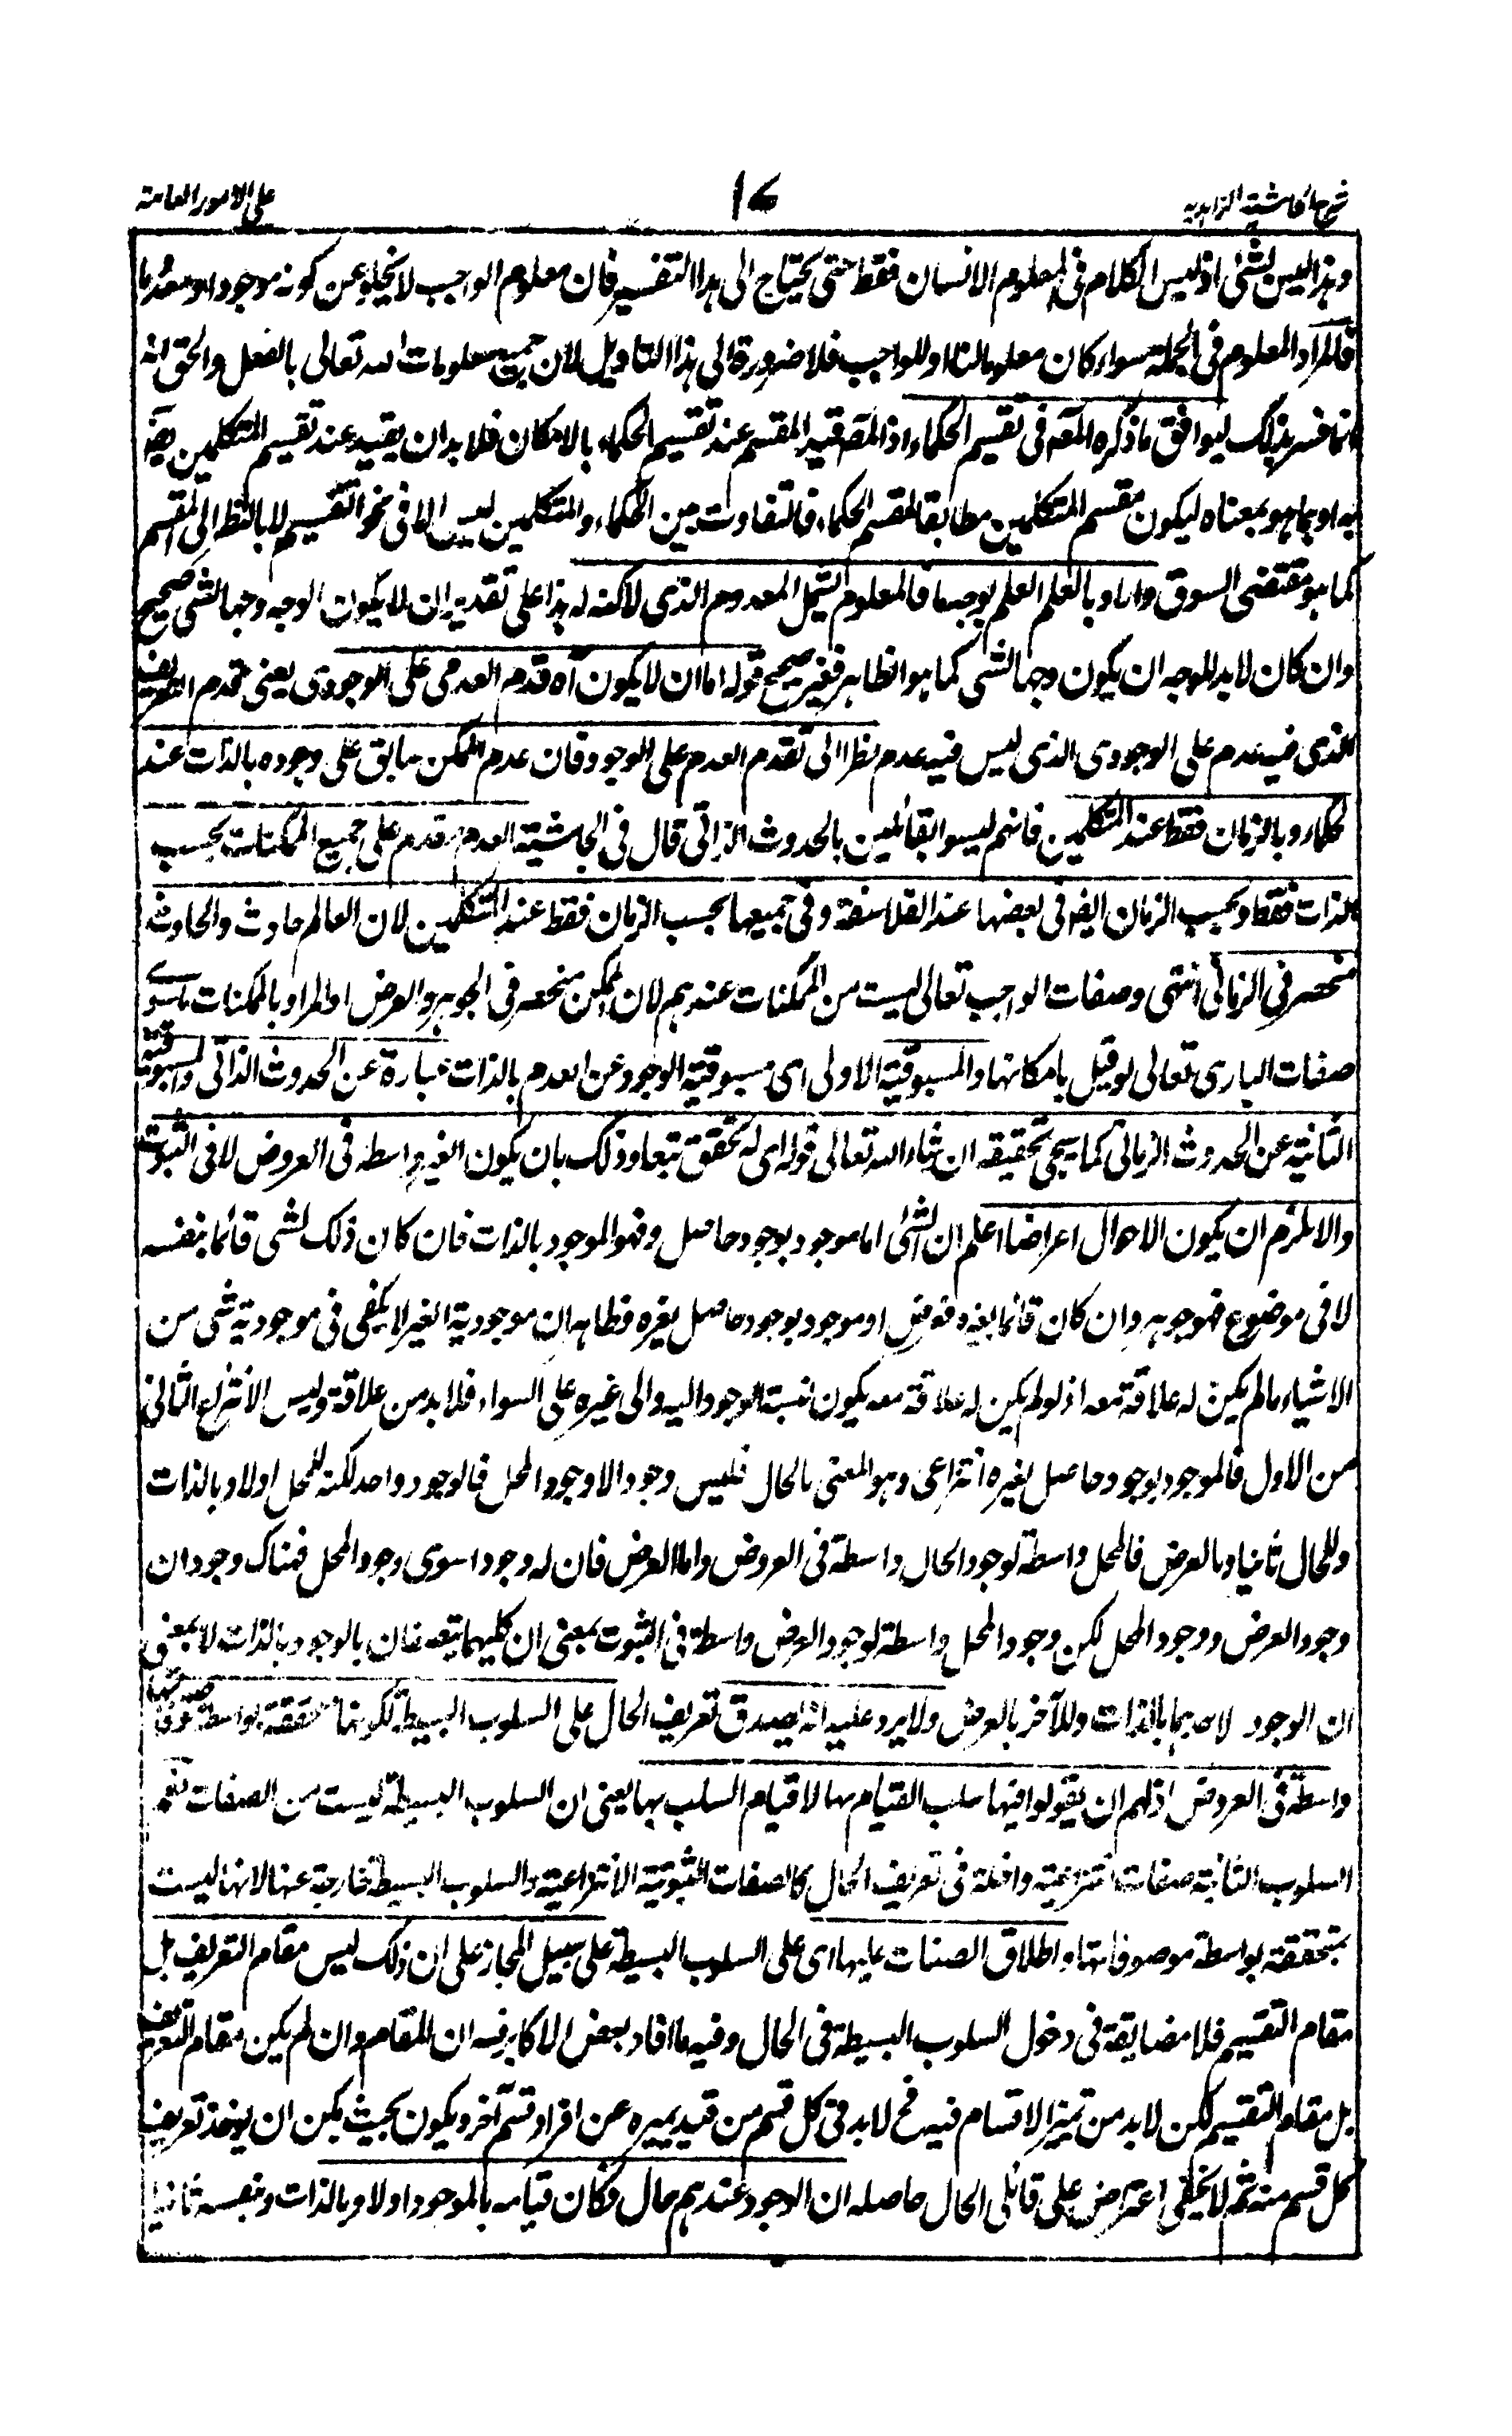 شرح الحاشية الزاهدية ١٧ على الامور العامة
وهذا ليس بشئ اذ ليس الكلام فى المعلوم الانسان فقط حتى يحتاج الى هذا التفسير فان معلوم الواجب لا يخلو عن كونه موجودا ومعدوما
فالمراد المعلوم فى الجملة سواء كان معلوما لنا او للواجب فلا ضرورة الى هذا التاويل لان جميع معلومات الله تعالى بالفعل والحق انه
انما فسر بذلك ليوافق ما ذكره المصـ فى تقسيم الحكماء اذ المصـ قيد المقسم عند تقسيم الحكماء بالامكان فلا بد ان يقيد عند تقسيم المتكلمين ايضا
به او بما هو بمعناه ليكون مقسم المتكلمين مطابقا لمقسم الحكماء فالتفاوت بين الحكماء والمتكلمين ليس الا فى نحو التقسيم لا بالنظر الى المقسم
كما هو مقتضى السوق واراد بالعلم العلم بوجه ما فالمعلوم يشمل المعدوم الذى لا كنه له هذا على تقدير ان لا يكون الوجه وجها لشئ صحيح
وان كان لا بد للوجه ان يكون وجها لشئ كما هو الظاهر فغير صحيح قوله اما ان لا يكون آه قدم العدمى على الوجودى يعنى قدم التعريف
الذى فيه عدم على الوجودى الذى ليس فيه عدم نظرا الى تقدم العدم على الوجود فان عدم الممكن سابق على وجوده بالذات عند
الحكماء وبالزمان فقط عند المتكلمين فانهم ليسوا بقائلين بالحدوث الذاتى قال فى الحاشية العدم مقدم على جميع الممكنات بحسب
الذات فقط وبحسب الزمان ايضا فى بعضها عند الفلاسفة وفى جميعها بحسب الزمان فقط عند المتكلمين لان العالم حادث والحادث
منحصر فى الزمانى انتهى وصفات الواجب تعالى ليست من الممكنات عندهم لان الممكن منحصر فى الجوهر والعرض او المراد بالممكنات ما سوى
صفات البارى تعالى لو قيل بامكانها والمسبوقية الاولى اى مسبوقية الوجود عن العدم بالذات عبارة عن الحدوث الذاتى والمسبوقية
الثانية عن الحدوث الزمانى كما سيجئ تحقيقه ان شاء الله تعالى قوله اى له تحقق تبعا وذلك بان يكون الغير واسطة فى العروض لا فى الثبوت
والا لزم ان يكون الاحوال اعراضا اعلم ان الشئ اما موجود بوجود حاصل وهو الموجود بالذات فان كان ذلك لشئ قائما بنفسه
لا فى موضوع فهو جوهر وان كان قائما بغيره فعرض او موجود بوجود حاصل بغيره وظاهر ان موجودية الغير لا يكفى فى موجودية شئ من
الاشياء ما لم يكن له علاقة معه اذ لو لم يكن له علاقة معه يكون نسبة الوجود اليه والى غيره على السواء فلا بد من علاقة وليس الا انتزاع الثانى
من الاول فالموجود بوجود حاصل بغيره انتزاعى وهو المعنى بالحال فليس وجود الا وجود المحل فالوجود واحد لكنه للمحل اولا وبالذات
وللحال ثانيا وبالعرض فالمحل واسطة لوجود الحال واسطة فى العروض واما العرض فان له وجودا سوى وجود المحل فهناك وجودان
وجود العرض ووجود المحل لكن وجود المحل واسطة لوجود العرض واسطة فى الثبوت بمعنى ان كليهما يتصفان بالوجود بالذات لا بمعنى
ان الوجود لاحدهما بالذات وللآخر بالعرض ولا يرد عليه انه يصدق تعريف الحال على السلوب البسيطة لكونها متحققة بواسطة موصوفاتها
واسطة فى العروض اذ لهم ان يقولوا فيها سلب القيام بها لا قيام السلب بها يعنى ان السلوب البسيطة ليست من الصفات نعم
السلوب الثابتة صفات انتزاعية داخلة فى تعريف الحال كالصفات الثبوتية الانتزاعية والسلوب البسيطة خارجة عنها لانها ليست
بمتحققة بواسطة موصوفاتها واطلاق الصفات عليها اى على السلوب البسيطة على سبيل المجاز على ان ذلك ليس مقام التعريف بل
مقام التقسيم فلا مضايقة فى دخول السلوب البسيطة فى الحال وفيه ما افاد بعض الاكابر انه ان المقام وان لم يكن مقام التعريف
بل مقام التقسيم لكن لا بد من تميز الاقسام فيه فح لا بد فى كل قسم من قيد يميزه عن افراد قسم آخر ويكون بحيث يمكن ان يوخذ تعريف
كل قسم منه ثم لا يخفى اعتراض على قائلى الحال حاصله ان الوجود عندهم حال فكان قيامه بالموجود اولا وبالذات وبنفسه ثانيا